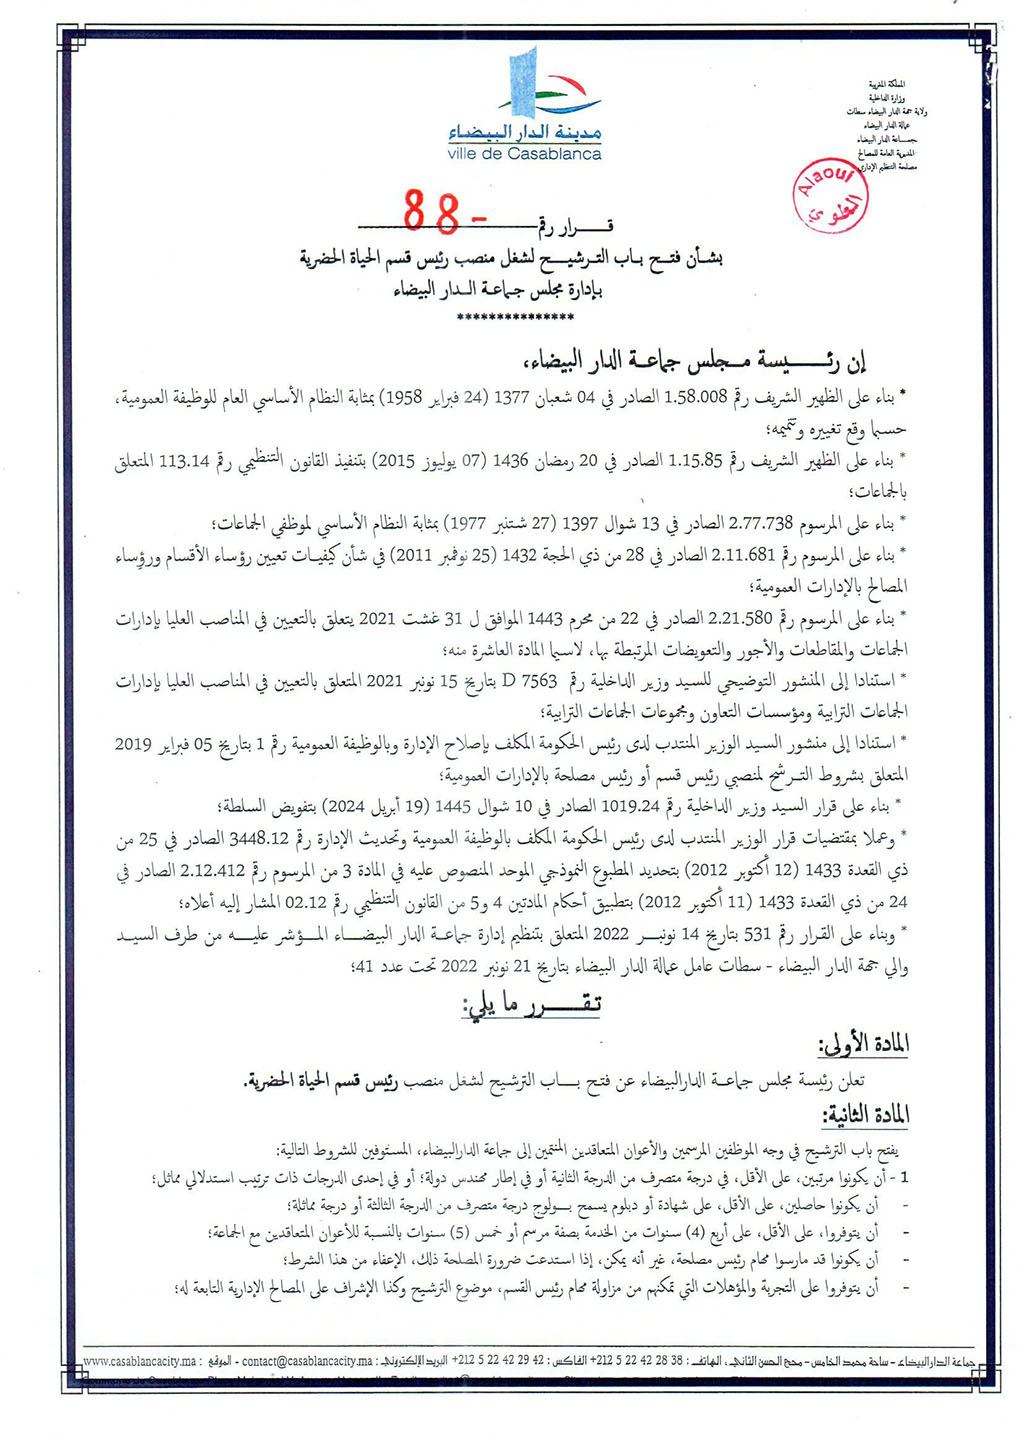 المملكة المغربية
وزارة الداخلية
ولاية جهة الدار البيضاء سطات
عمالة الدار البيضاء
جمـاعة الدار البيضاء
المديرية العامة للمصالح
مصلحة التنظيم الإداري
Alaoui
العلوي
مدينة الدار البيضاء
ville de Casablanca
قـــرار رقم 88-
بشأن فتـح بـاب التـرشيـــح لشغل منصب رئيس قسم الحياة الحضرية
بإدارة مجلس جـماعـة الـدار البيضاء
***************
إن رئـــــيسة مـجلس جماعـة الدار البيضاء،
* بناء على الظهير الشريف رقم 1.58.008 الصادر في 04 شعبان 1377 (24 فبراير 1958) بمثابة النظام الأساسي العام للوظيفة العمومية،
حسبما وقع تغييره وتتميمه؛
* بناء على الظهير الشريف رقم 1.15.85 الصادر في 20 رمضان 1436 (07 يوليوز 2015) بتنفيذ القانون التنظيمي رقم 113.14 المتعلق
بالجماعات؛
* بناء على المرسوم 2.77.738 الصادر في 13 شوال 1397 (27 شتنبر 1977) بمثابة النظام الأساسي لموظفي الجماعات؛
* بناء على المرسوم رقم 2.11.681 الصادر في 28 من ذي الحجة 1432 (25 نوفمبر 2011) في شأن كيفيـات تعيين رؤساء الأقسام ورؤساء
المصالح بالإدارات العمومية؛
* بناء على المرسوم رقم 2.21.580 الصادر في 22 من محرم 1443 الموافق ل 31 غشت 2021 يتعلق بالتعيين في المناصب العليا بإدارات
الجماعات والمقاطعات والأجور والتعويضات المرتبطة بها، لاسيما المادة العاشرة منه؛
* استنادا إلى المنشور التوضيحي للسيد وزير الداخلية رقم D 7563 بتاريخ 15 نونبر 2021 المتعلق بالتعيين في المناصب العليا بإدارات
الجماعات الترابية ومؤسسات التعاون ومجموعات الجماعات الترابية؛
* استنادا إلى منشور السيد الوزير المنتدب لدى رئيس الحكومة المكلف بإصلاح الإدارة وبالوظيفة العمومية رقم 1 بتاريخ 05 فبراير 2019
المتعلق بشروط التـرشح لمنصبي رئيس قسم أو رئيس مصلحة بالإدارات العمومية؛
* بناء على قرار السيد وزير الداخلية رقم 1019.24 الصادر في 10 شوال 1445 (19 أبريل 2024) بتفويض السلطة؛
* وعملا بمقتضيات قرار الوزير المنتدب لدى رئيس الحكومة المكلف بالوظيفة العمومية وتحديث الإدارة رقم 3448.12 الصادر في 25 من
ذي القعدة 1433 (12 أكتوبر 2012) بتحديد المطبوع النموذجي الموحد المنصوص عليه في المادة 3 من المرسوم رقم 2.12.412 الصادر في
24 من ذي القعدة 1433 (11 أكتوبر 2012) بتطبيق أحكام المادتين 4 و5 من القانون التنظيمي رقم 02.12 المشار إليه أعلاه؛
* وبناء على القرار رقم 531 بتاريخ 14 نونبـر 2022 المتعلق بتنظيم إدارة جماعـة الدار البيضـاء المـؤشر عليـه من طرف السيـد
والي جهة الدار البيضاء - سطات عامل عمالة الدار البيضاء بتاريخ 21 نونبر 2022 تحت عدد 41؛
تـقـــرر ما يلي:
المادة الأولى:
تعلن رئيسة مجلس جماعـة الدارالبيضاء عن فتـح بـــاب الترشيح لشغل منصب رئيس قسم الحياة الحضرية.
المادة الثانية:
يفتح باب الترشيح في وجه الموظفين المرسمين والأعوان المتعاقدين المنتمين إلى جماعة الدارالبيضاء، المستوفين للشروط التالية:
1 - أن يكونوا مرتبين، على الأقل، في درجة متصرف من الدرجة الثانية أو في إطار مهندس دولة؛ أو في إحدى الدرجات ذات ترتيب استدلالي مماثل؛
- أن يكونوا حاصلين، على الأقل، على شهادة أو دبلوم يسمح بـولوج درجة متصرف من الدرجة الثالثة أو درجة مماثلة؛
- أن يتوفروا، على الأقل، على أربع (4) سنوات من الخدمة بصفة مرسم أو خمس (5) سنوات بالنسبة للأعوان المتعاقدين مع الجماعة؛
- أن يكونوا قد مارسوا مهام رئيس مصلحة، غير أنه يمكن، إذا استدعت ضرورة المصلحة ذلك، الإعفاء من هذا الشرط؛
- أن يتوفروا على التجربة والمؤهلات التي تمكنهم من مزاولة مهام رئيس القسم، موضوع الترشيح وكذا الإشراف على المصالح الإدارية التابعة له؛
جماعة الدارالبيضاء - ساحة محمد الخامس - محج الحسن الثاني، الهاتف : 38 28 42 22 5 212+ الفاكس : 42 29 42 22 5 212+ البريد الإلكتروني : contact@casablancacity.ma - الموقع : www.casablancacity.ma